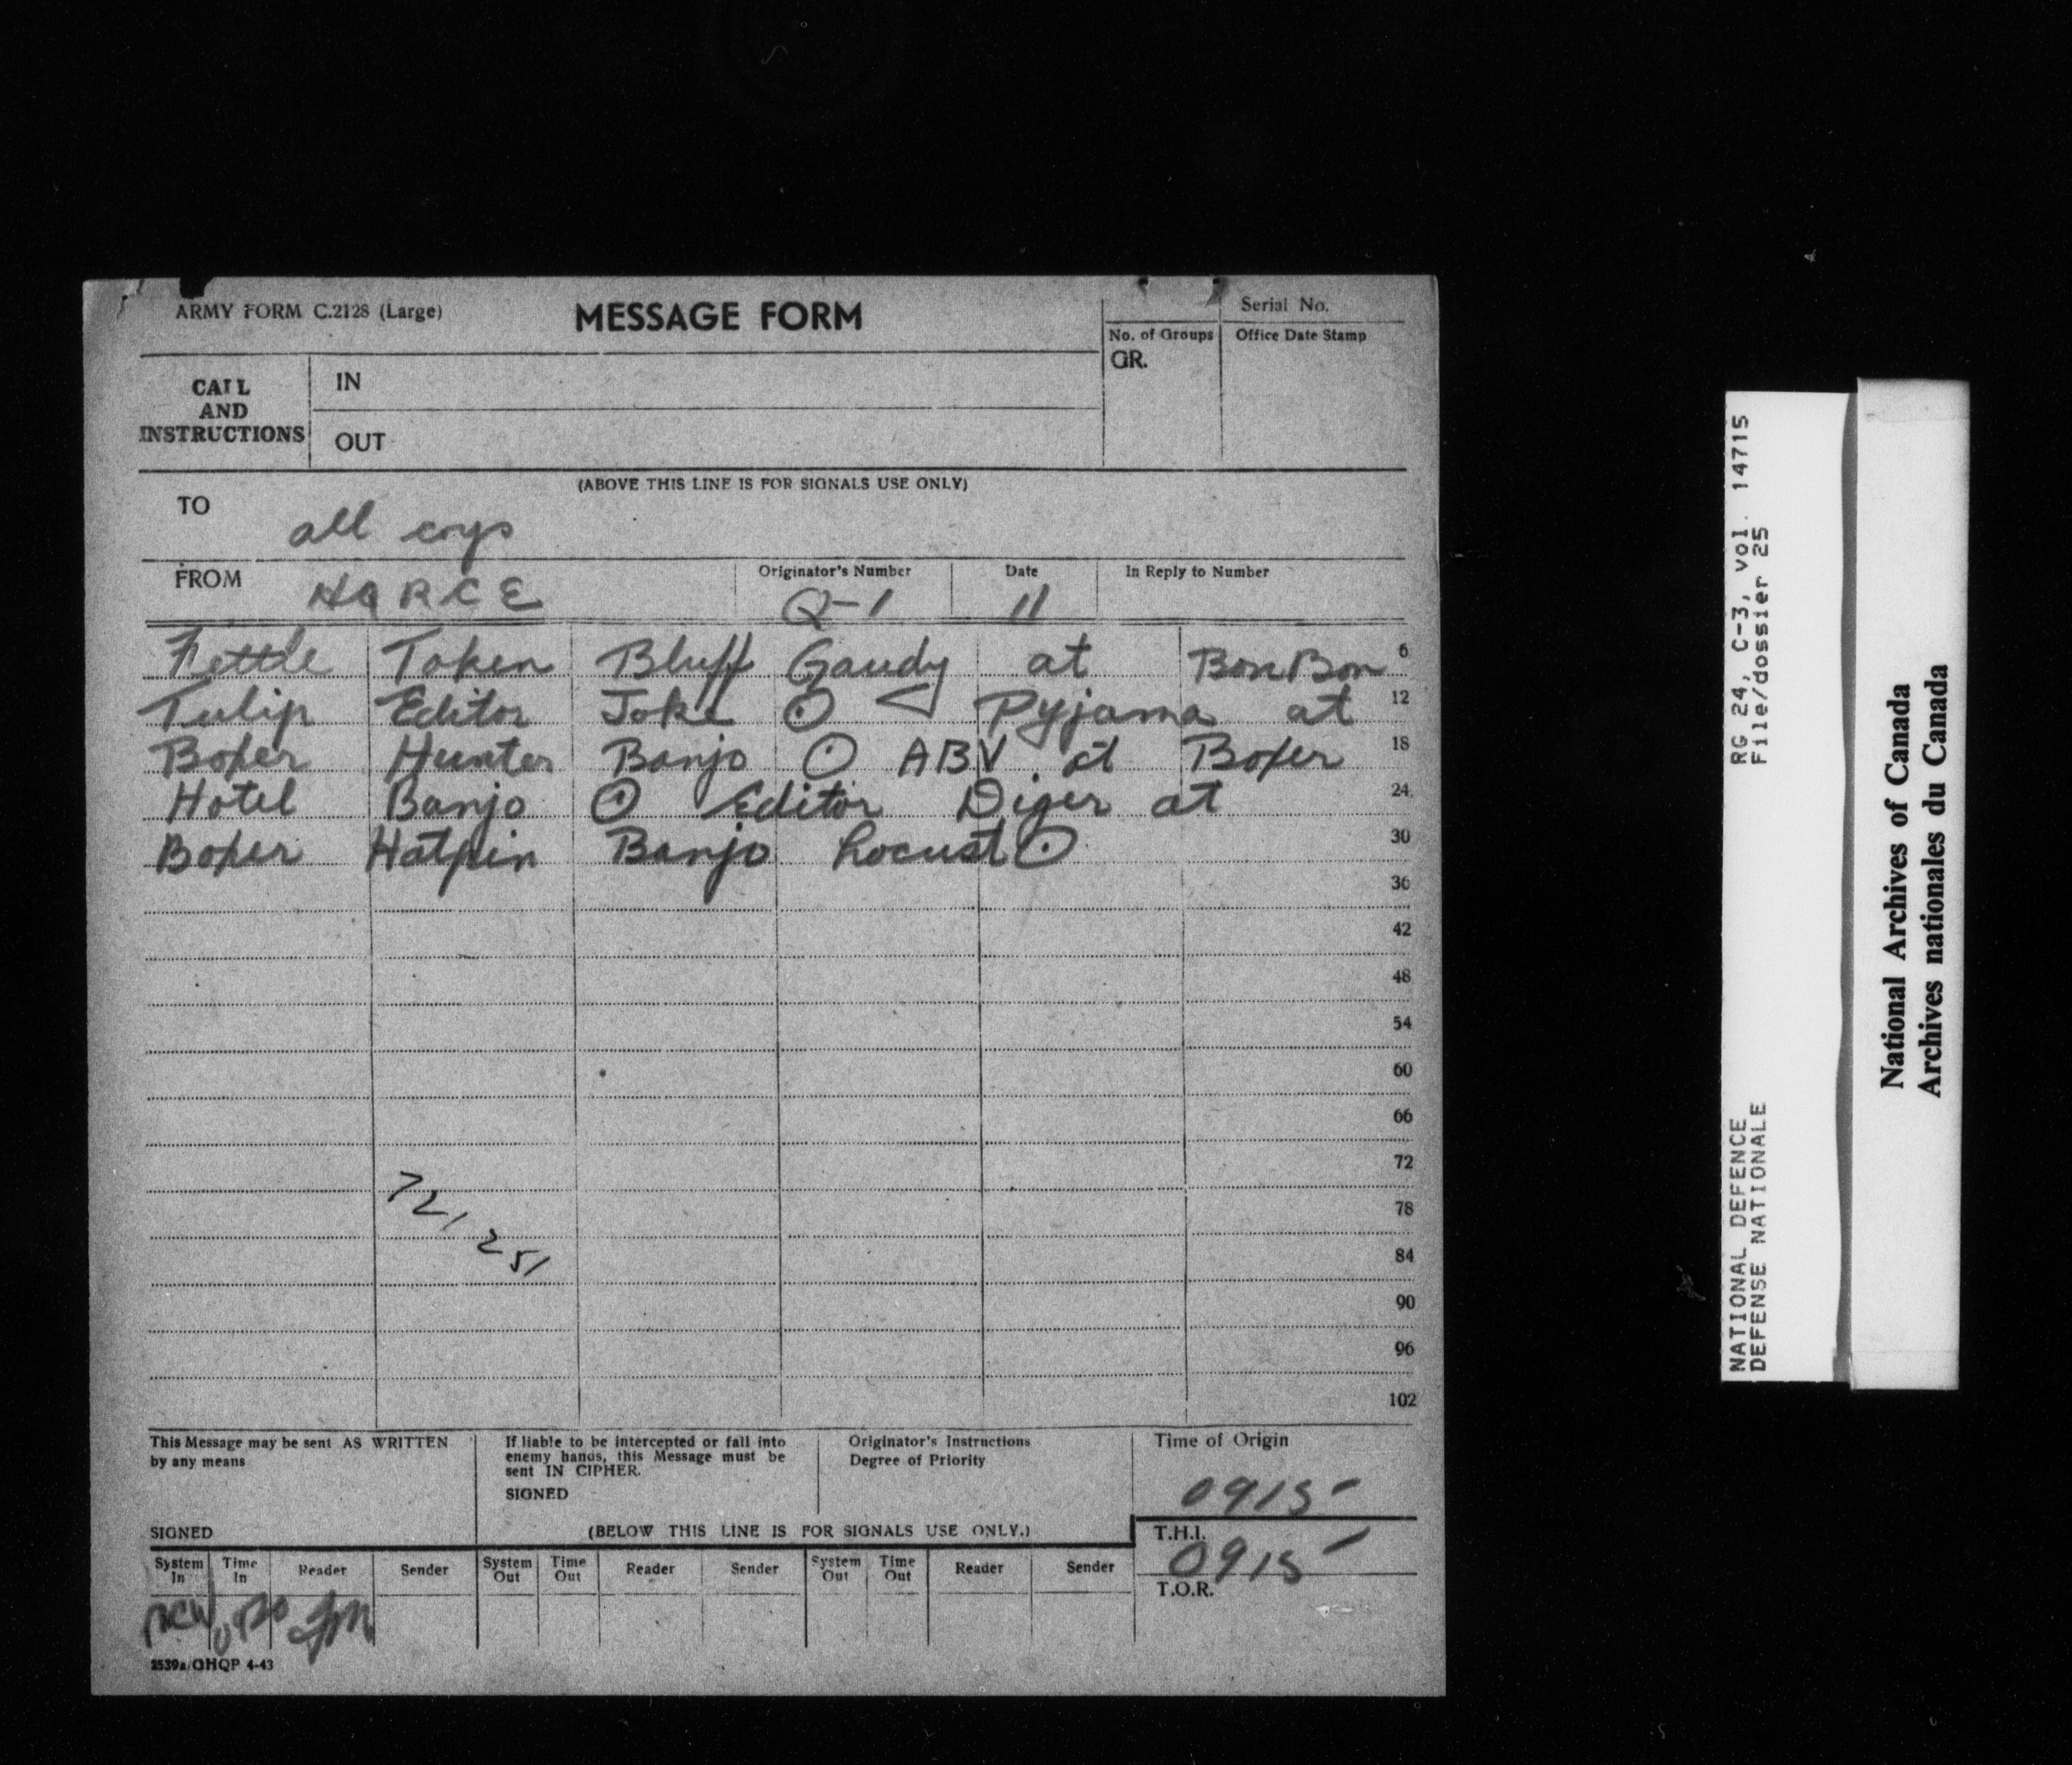 ARMY FORM C.2128 (Large)
MESSAGE FORM
Serial No.
No. of Groups
GR.
Office Date Stamp
CALL AND INSTRUCTIONS
IN
OUT
(ABOVE THIS LINE IS FOR SIGNALS USE ONLY)
TO
all coys
FROM
HQ RCE
Originator's Number
Q-1
Date
11
In Reply to Number
Fettle Token Bluff Gaudy at BonBon 6
Tulip Editor Joke ⊙ Pyjama at 12
Boxer Hunter Banjo ⊙ ABV at Boxer 18
Hotel Banjo ⊙ Editor Diger at 24
Boxer Hatpin Banjo Locust ⊙ 30
36
42
48
54
60
66
72
72,
78
251
84
90
96
102
This Message may be sent AS WRITTEN
by any means
SIGNED
If liable to be intercepted or fall into
enemy hands, this Message must be
sent IN CIPHER.
SIGNED
Originator's Instructions
Degree of Priority
Time of Origin
0915
(BELOW THIS LINE IS FOR SIGNALS USE ONLY.)
T.H.I.
0915
T.O.R.
System In
Time In
Reader
Sender
System Out
Time Out
Reader
Sender
System Out
Time Out
Reader
Sender
2539a/GHQP 4-43
NATIONAL DEFENCE RG 24, C-3, vol. 14715
DEFENSE NATIONALE File/dossier 25
National Archives of Canada
Archives nationales du Canada